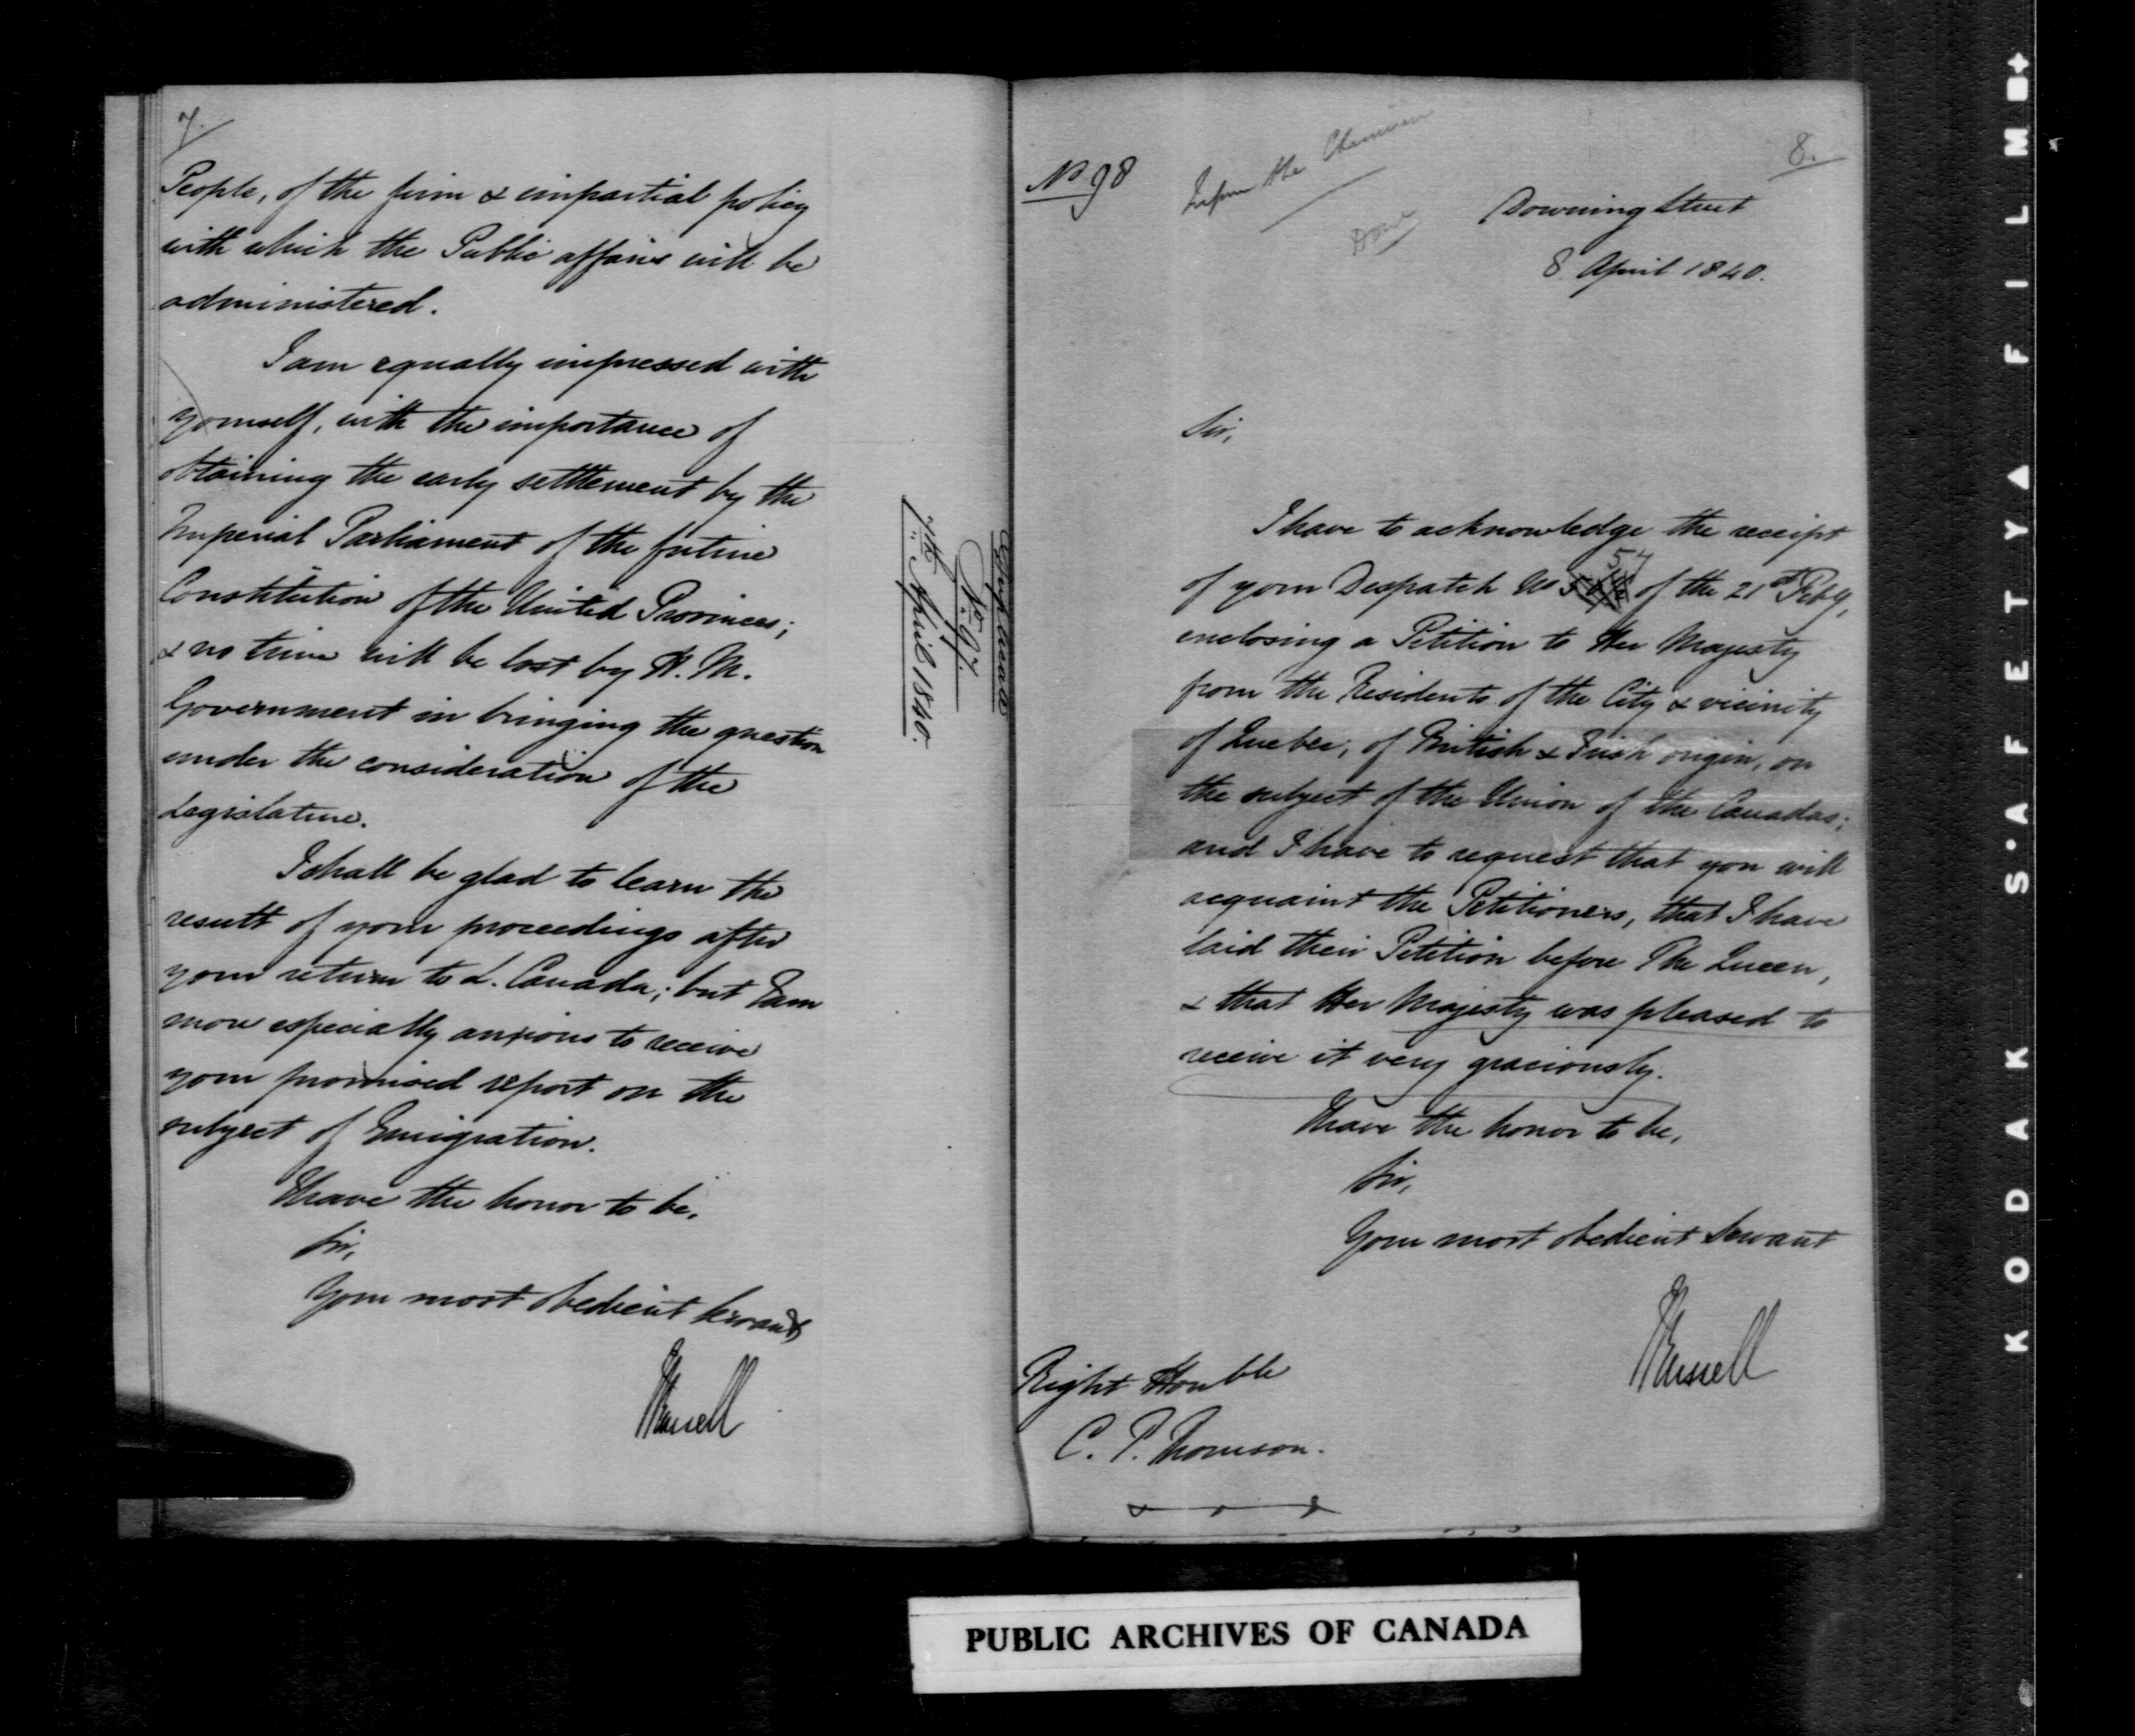 7.
People, of the firm & impartial policy
with which the Public affairs will be
administered.
I am equally impressed with
yourself, with the importance of
obtaining the early settlement by the
Imperial Parliament of the future
Constitution of the United Provinces;
& no time will be lost by H. M.
Government in bringing the question
under the consideration of the
Legislature.
I shall be glad to learn the
result of your proceedings after
your return to L. Canada; but I am
more especially anxious to receive
your promised report on the
subject of Emigration.
I have the honor to be,
Sir,
Your most obedient Servant
J Russell
Duplicate
No. 97.
7th April 1840.
8.
No 98
Inform the Chairman
Done
Downing Street
8 April 1840.
Sir,
I have to acknowledge the receipt
of your Despatch No 57 of the 21st Feby,
enclosing a Petition to Her Majesty
from the Residents of the City & vicinity
of Quebec, of British & Irish origin, on
the subject of the Union of the Canadas;
and I have to request that you will
acquaint the Petitioners, that I have
laid their Petition before The Queen,
& that Her Majesty was pleased to
receive it very graciously.
I have the honor to be,
Sir,
Your most obedient Servant
J Russell
Right Honble
C. P. Thomson.
PUBLIC ARCHIVES OF CANADA
KODAK S'AFETY FILM